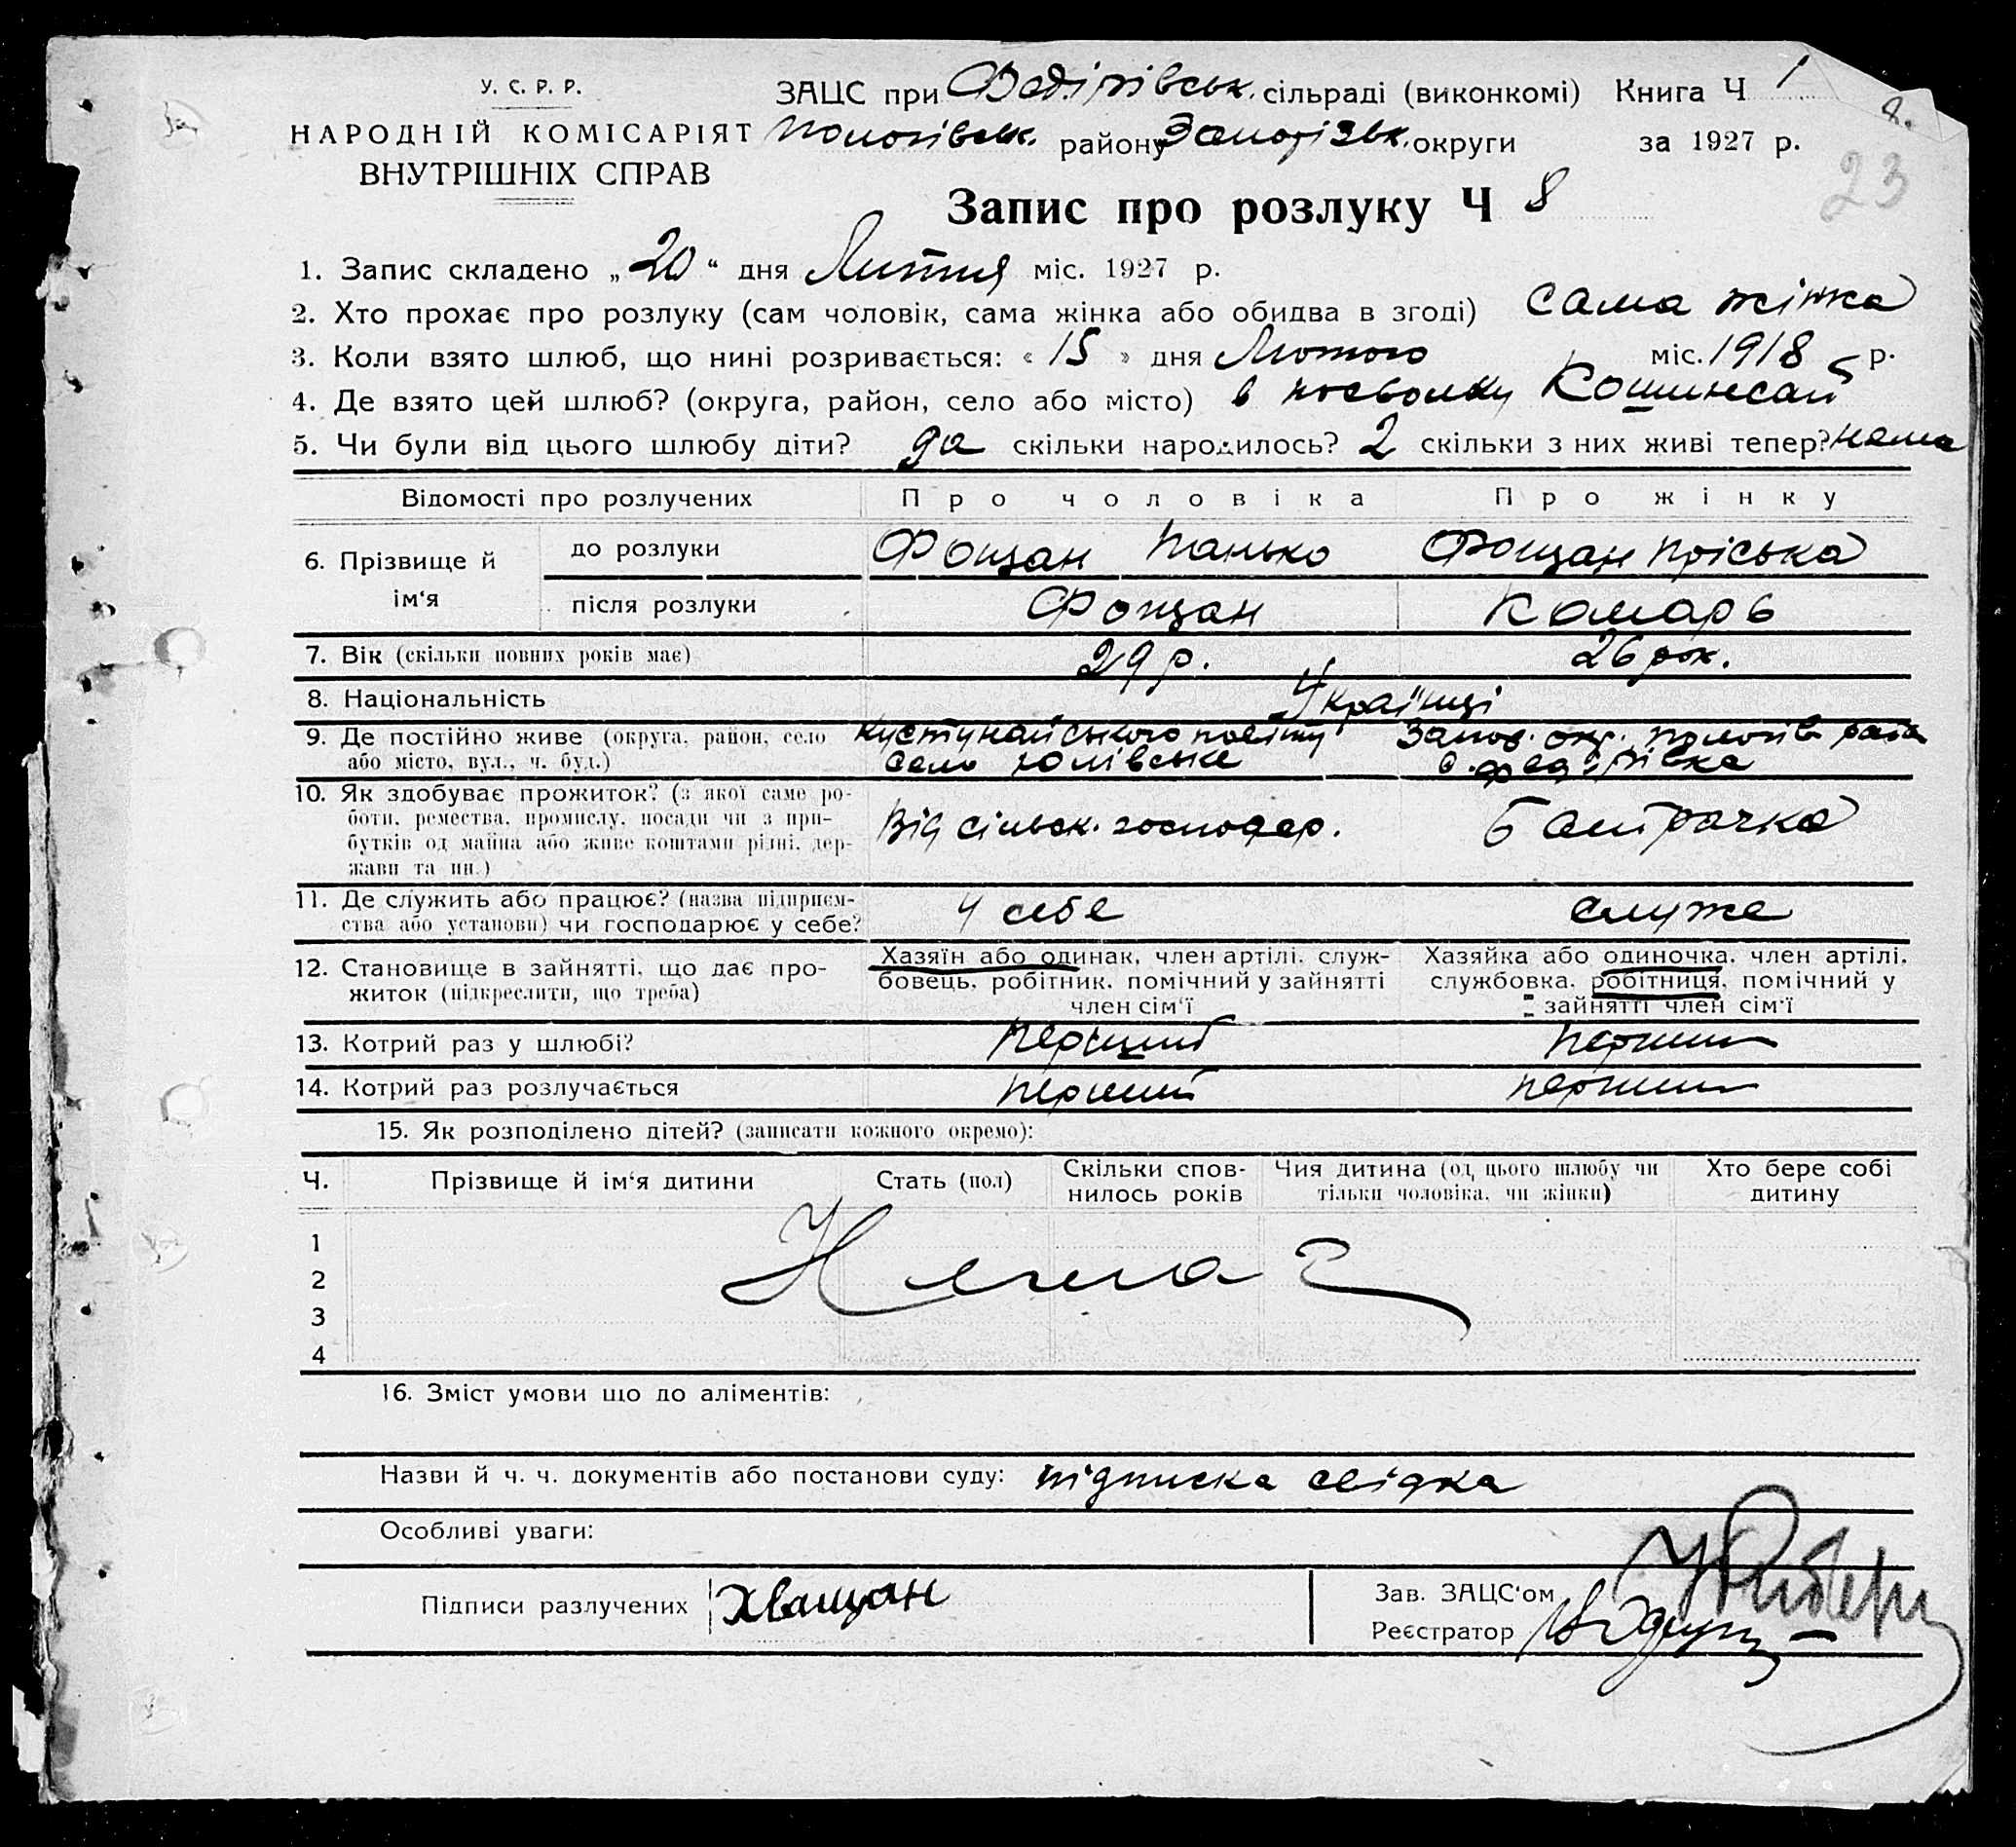 У. С. Р. Р.
НАРОДНІЙ КОМІСАРІЯТ
ВНУТРІШНІХ СПРАВ
ЗАЦС при Федірівськ. сільраді (виконкомі) Книга Ч 1
Пологівськ. району Запорізьк. округи за 1927 р.
8.
23
Запис про розлуку Ч 8
1. Запис складено „20“ дня Липтня міс. 1927 р.
2. Хто прохає про розлуку (сам чоловік, сама жінка або обидва в згоді) сама жінка
3. Коли взято шлюб, що нині розривається: « 15 » дня Лютого міс. 1918 р.
4. Де взято цей шлюб? (округа, район, село або місто) в посьолку Кошинсай
5. Чи були від цього шлюбу діти? да скільки народилось? 2 скільки з них живі тепер? нема
Відомості про розлучених Про чоловіка Про жінку
6. Прізвище й ім‘я
до розлуки Фощан Панько Фощан Пріська
після розлуки Фощан Комарь
7. Вік (скільки повних років має) 29 р. 26 рок.
8. Національність Українці
9. Де постійно живе (округа, район, село або місто, вул., ч. буд.)
Кустунайського повіту
село Юлівське
Запор. окр. Пологів. рай
с. Федірівка
10. Як здобуває прожиток? (з якої саме ро-
боти, ремества, промислу, посади чи з при-
бутків од майна або живе коштами рідні, дер-
жави та ин.)
Від сільськ. господар. Батрачка
11. Де служить або працює? (назва підприєм-
ства або установи) чи господарює у себе?
У себе служе
12. Становище в зайнятті, що дає про-
житок (підкреслити, що треба)
Хазяїн або одинак, член артілі, служ-
бовець, робітник, помічний у зайнятті
член сім‘ї
Хазяйка або одиночка, член артілі,
службовка, робітниця, помічний у
зайнятті член сім‘ї
13. Котрий раз у шлюбі? перший перший
14. Котрий раз розлучається перший перший
15. Як розподілено дітей? (записати кожного окремо):
Ч. Прізвище й ім‘я дитини Стать (пол) Скільки спов-
нилось років Чия дитина (од цього шлюбу чи
тільки чоловіка, чи жінки) Хто бере собі
дитину
1
2
3
4
Нема
16. Зміст умови що до аліментів:
Назви й ч. ч. документів або постанови суду: підписка свідка
Особливі уваги:
Підписи разлучених Хващан
Зав. ЗАЦС‘ом
Реєстратор